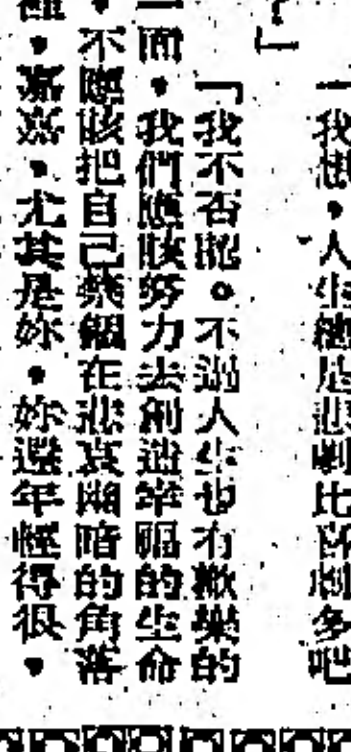 ？」
「我想，人生總是悲劇比喜劇多吧
「我不否認。不過人生也有歡樂的
一面，我們應該努力去創造幸福的生命
，不應該把自己綑在悲哀幽暗的角落
，嘉嘉，尤其是妳，妳還年輕得很，